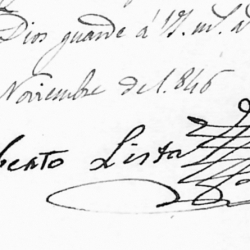 Dios guarde á V. m. a
Noviembre de 1.846
berto Lista